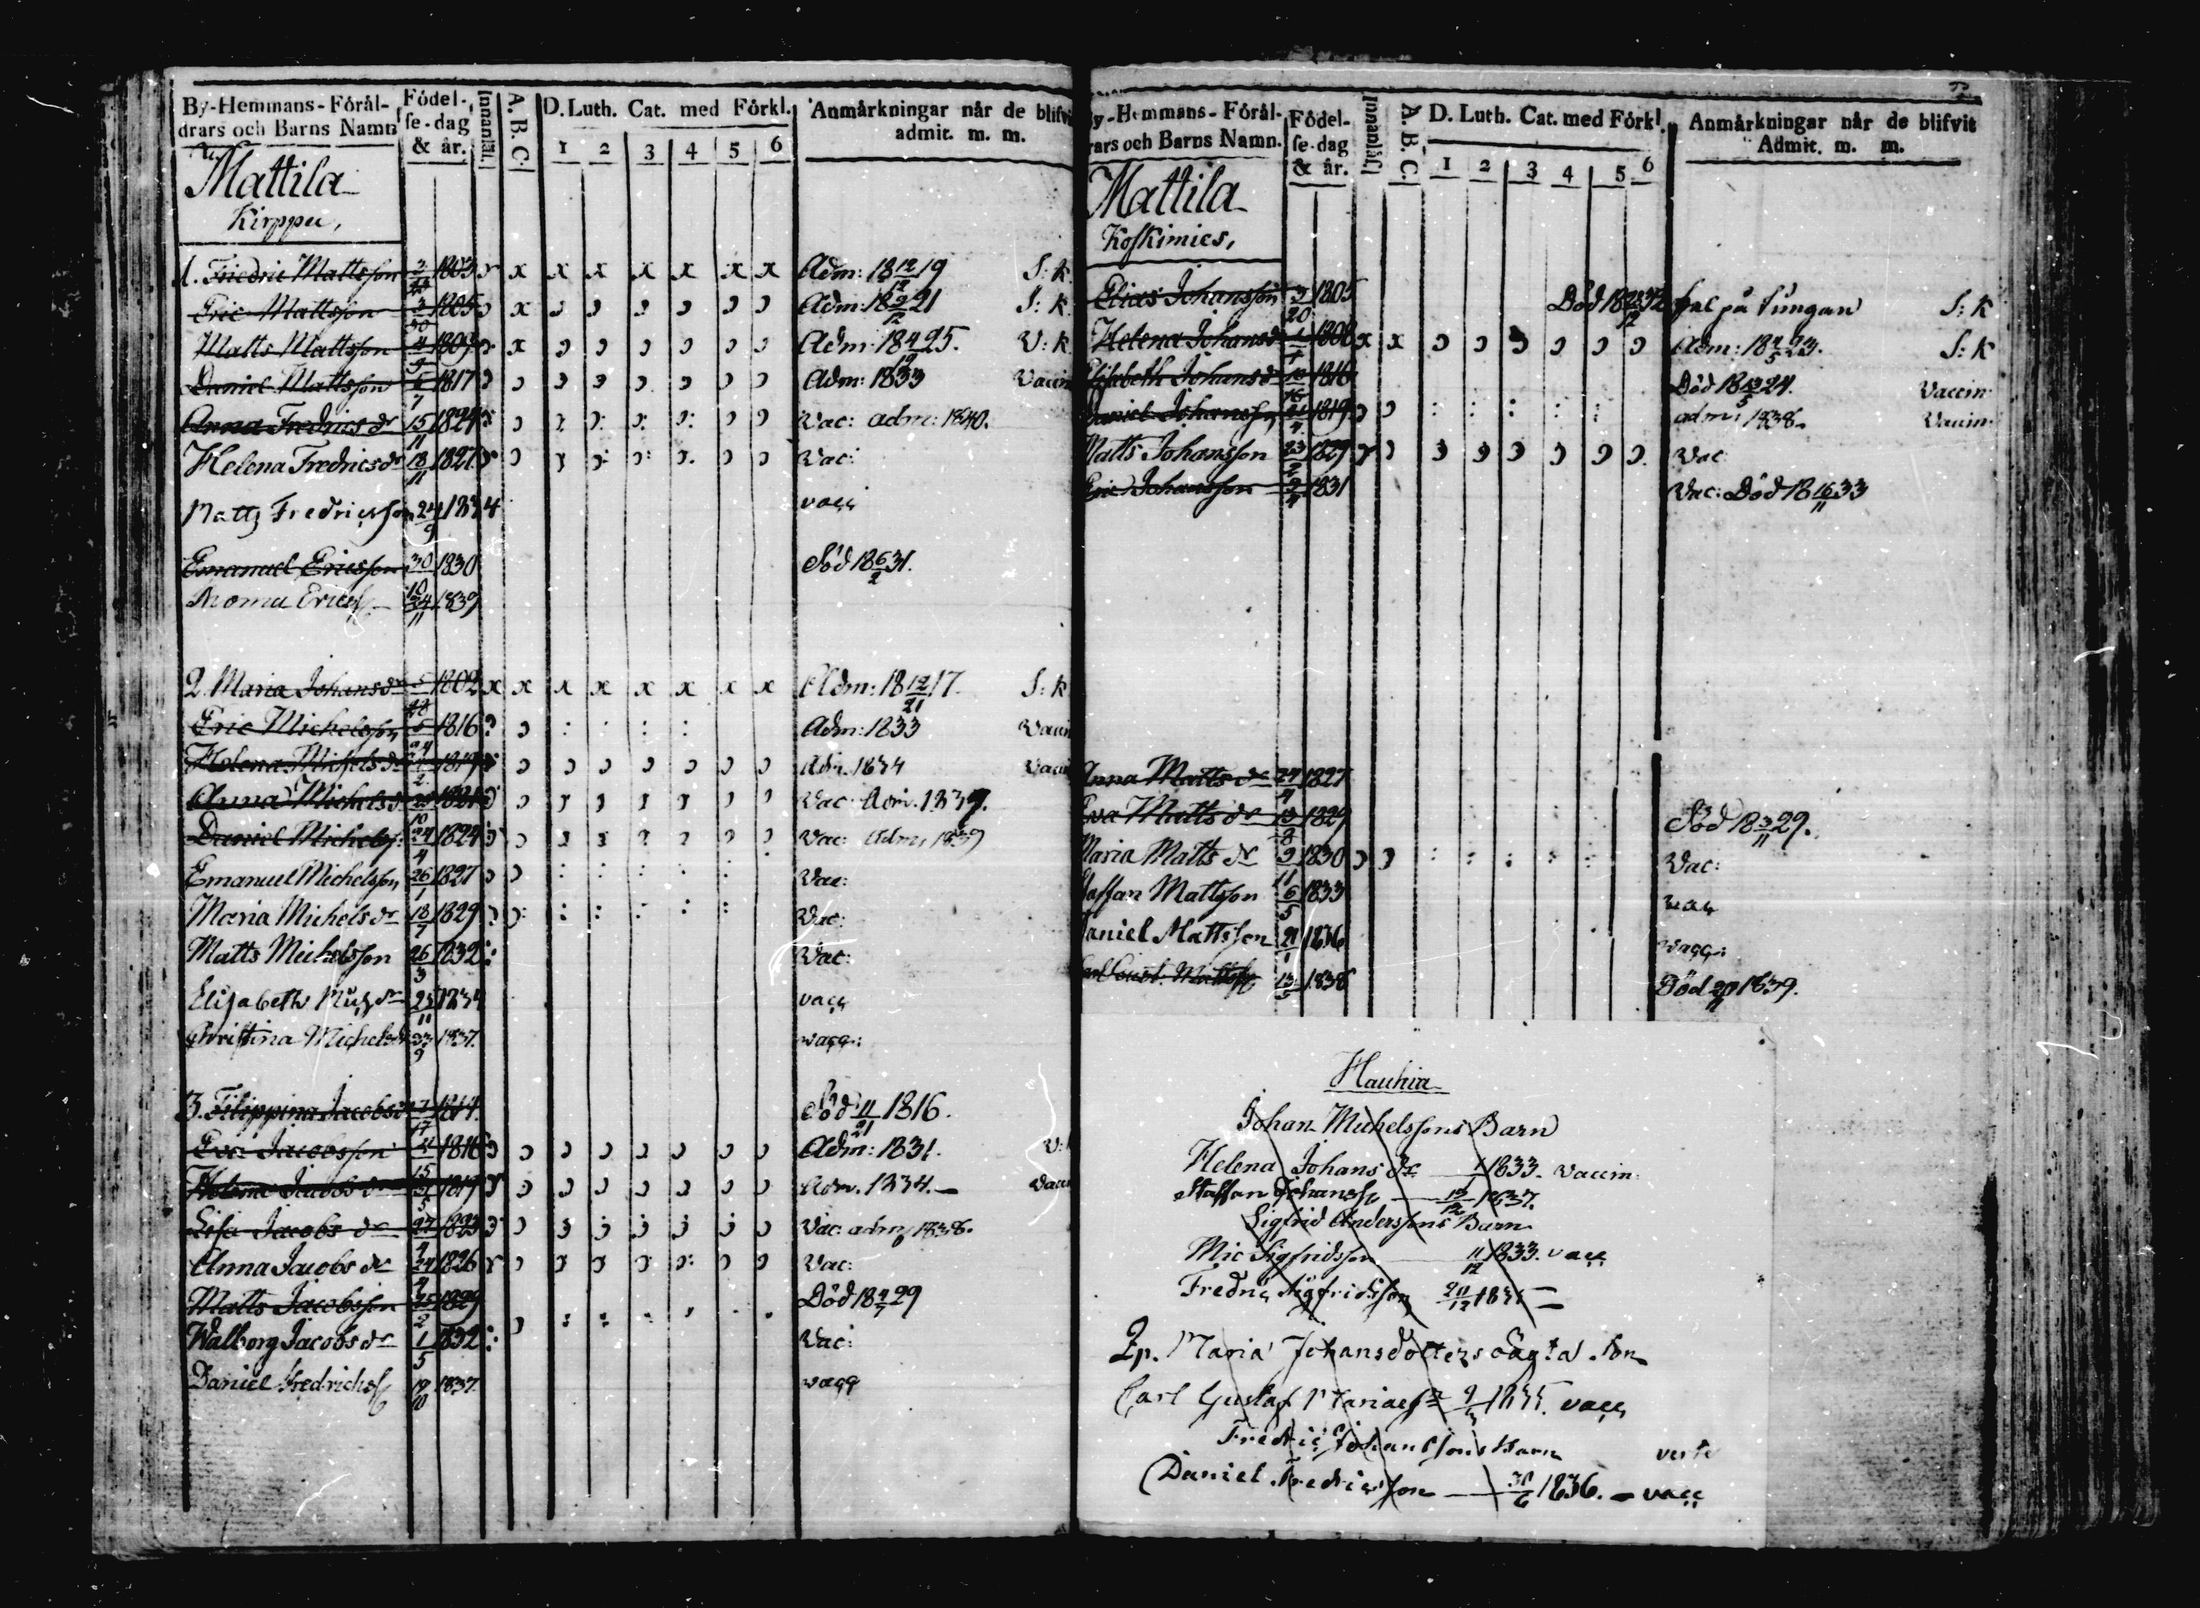 By-Hemmans-Föräl-
drars och Barns Namn
Födel-
se-dag
& år.
Innanläf.
A. B. C.
D. Luth. Cat. med Förkl.
1 2 3 4 5 6
Anmärkningar når de blifvit
admit. m. m.
Mattila
Kirppu,
1. Fredric Mattsson 1803 x x x x x x x Adm: 18 12/12 19 S: k
Eric Mattsson 1805 x Adm: 18 21 S: k
Matts Mattsson 1809 x Adm: 18 25. V: k
Daniel Mattsson 1817 Adm: 1833 Vaccin
Anna Fredricsdr 15/11 1824 Vac: adm: 1840.
Helena Fredricsdr 18/11 1827 Vac:
Matts Fredricsson 24/9 1834 vacc
Emanuel Ericsson 30/10 1830 Död 18 6/2 31.
Ericss 24/11 1839
2. Maria Johansdr 1802 x x x x x x x x Adm: 18 12/21 17. S: k
Eric Michelsson 1816 Adm: 1833 Vaccin
Helena Michelsdr 1819 Adm. 1834 Vaccin
Anna Michelsdr 1821 Vac: Adm. 1839.
Daniel Michelss: 24/4 1824 Vac: Adm, 1839
Emanuel Michelsson 26/1 1827 Vac:
Maria Michelsdr 18/7 1829 Vac:
Matts Michelsson 26/3 1832 Vac:
Elisabeth Michdr 25/11 1834 vacc
Christina Michelsdr 23/9 1837. vacc:
3. Filippina Jacobsdr 1814. Död 11/21 1816.
Eva Jacobsson 1816 Adm: 1831. V: k
Helena Jacobsdr 1819 Adm. 1834. Vaccin
Lisa Jacobsdr 27 1823 Vac: adm, 1838.
Anna Jacobsdr 24 1826 Vac:
Matts Jacobsson 25/2 1829 Död 18 29
Walborg Jacobsdr 1/5 1832 Vac:
Daniel Fredrichss 19/10 1837. vacc
By-Hemmans-Föräl-
rars och Barns Namn.
Födel-
se-dag
& år.
Innanläf
A. B. C.
D. Luth. Cat. med Förkl.
1 2 3 4 5 6
Anmärkningar når de blifvit
Admit. m. m.
Mattila
Koskimies,
Elias Johansson 3/20 1805 Död 18 32 fel på tungan S: k
Helena Johansdr 1808 x x Adm: 18 23. S: k
Elisabeth Johansdr 1816 Död 18 24. Vaccin:
Daniel Johansson 1819 adm: 1838. Vaccin:
Matts Johansson 23/2 1829 Vac
Eric Johansson 1831 Vac: Död 18 16/11 33
Anna Mattsdr 24/4 1827
Eva Mattsdr 13/8 1829 Död 18 3/11 29.
Maria Mattsdr 9/11 1830 Vac:
Staffan Mattsson 6/5 1833 vacc
Daniel Mattsson 21/1 1836 vacc:
Mattss 13/5 1838 Död 1839.
Hauhia
Johan Michelssons Barn
Helena Johansdr 1833. Vaccin:
Staffan Johanss 1837.
Sigfrid Anderssons Barn
Mic Sigfridsson 11/12 1833. vacc
Fredric Sigfridsson 20/12 1835
Maria Johansdotters oägta son
Carl Gustaf Mariaess 1835. vacc
Fredric Johanssons Barn
verte
Daniel Fredricsson 30/6 1836. vacc